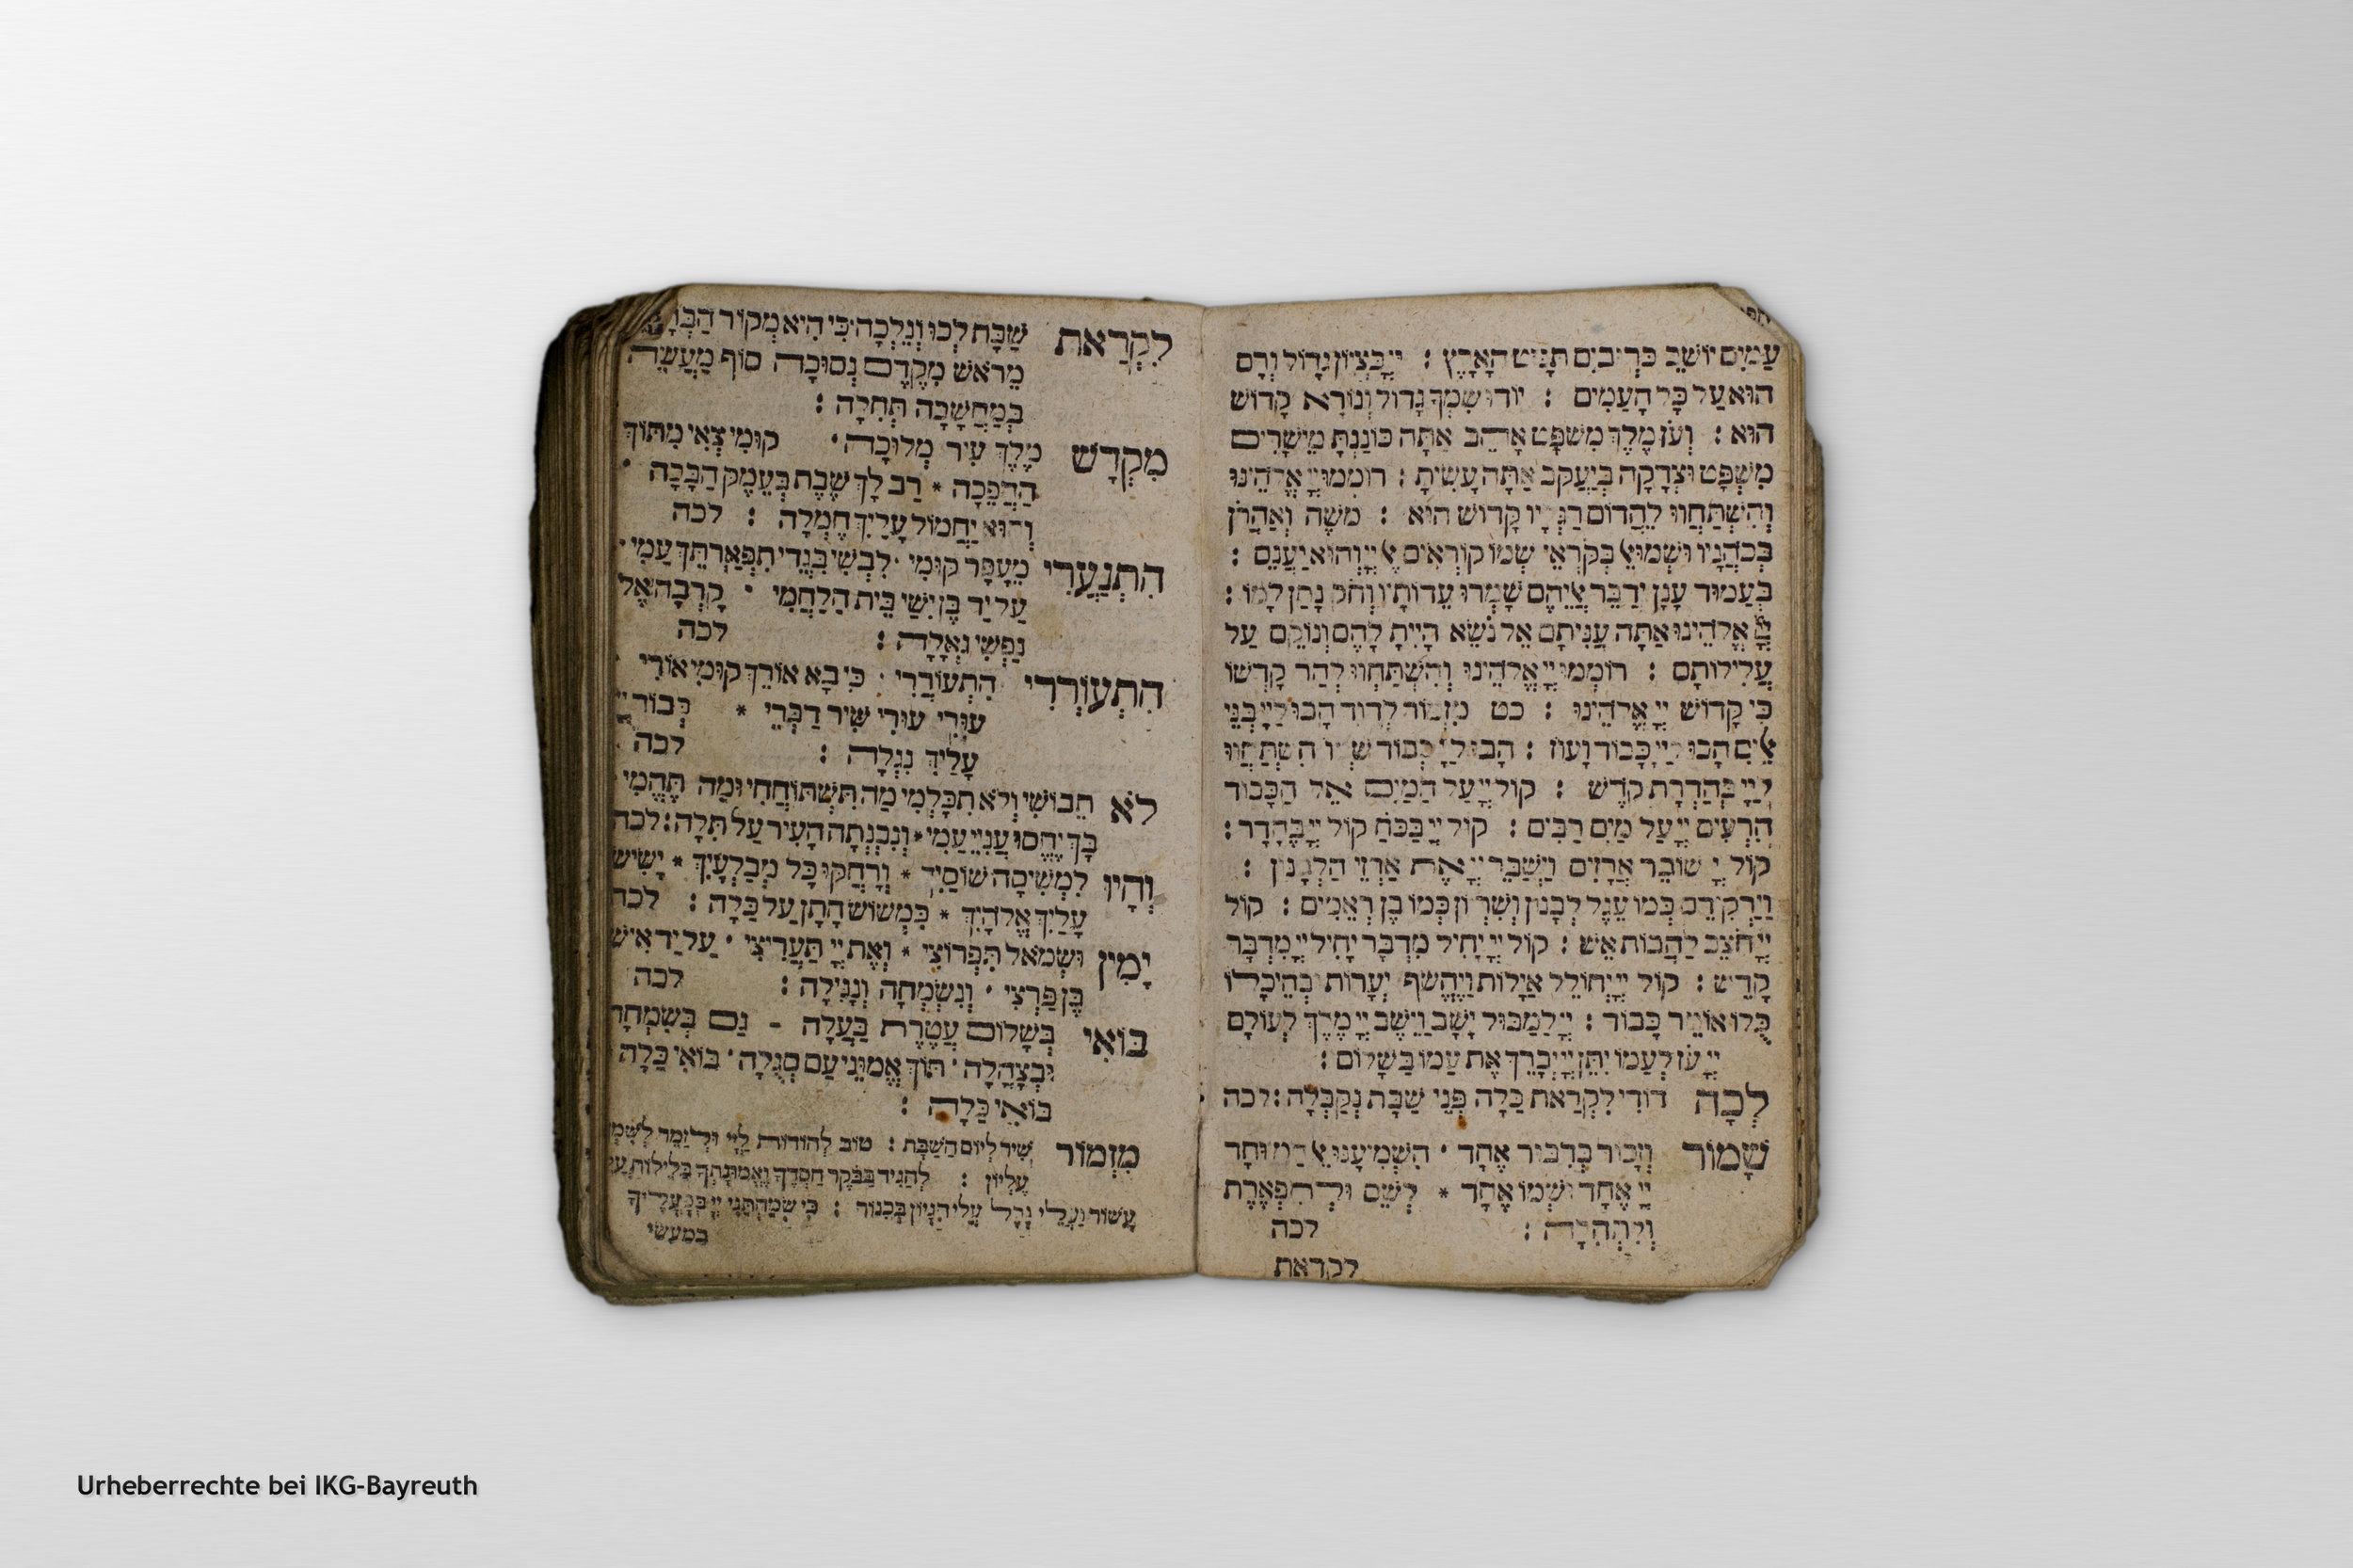 עַמִּים יוֹשֵׁב כְּרֻבִים תָּנוּט הָאָרֶץ : יְיָ בְּצִיּוֹן גָּדוֹל וְרָם
הוּא עַל כָּל הָעַמִּים : יוֹדוּ שִׁמְךָ גָּדוֹל וְנוֹרָא קָדוֹשׁ
הוּא : וְעֹז מֶלֶךְ מִשְׁפָּט אָהֵב אַתָּה כּוֹנַנְתָּ מֵישָׁרִים
מִשְׁפָּט וּצְדָקָה בְּיַעֲקֹב אַתָּה עָשִׂיתָ : רוֹמְמוּ יְיָ אֱלֹהֵינוּ
וְהִשְׁתַּחֲווּ לַהֲדוֹם רַגְלָיו קָדוֹשׁ הוּא : מֹשֶׁה וְאַהֲרֹן
בְּכֹהֲנָיו וּשְׁמוּאֵל בְּקֹרְאֵי שְׁמוֹ קוֹרְאִים אֶל יְיָ וְהוּא יַעֲנֵם :
בְּעַמּוּד עָנָן יְדַבֵּר אֲלֵיהֶם שָׁמְרוּ עֵדוֹתָיו וְחֹק נָתַן לָמוֹ :
יְיָ אֱלֹהֵינוּ אַתָּה עֲנִיתָם אֵל נֹשֵׂא הָיִיתָ לָהֶם וְנוֹקֵם עַל
עֲלִילוֹתָם : רוֹמְמוּ יְיָ אֱלֹהֵינוּ וְהִשְׁתַּחֲווּ לְהַר קָדְשׁוֹ
כִּי קָדוֹשׁ יְיָ אֱלֹהֵינוּ : כט מִזְמוֹר לְדָוִד הָבוּ לַיְיָ בְּנֵי
אֵלִים הָבוּ לַיְיָ כָּבוֹד וָעוֹז : הָבוּ לַיְיָ כְּבוֹד שְׁמוֹ הִשְׁתַּחֲווּ
לַיְיָ בְּהַדְרַת קֹדֶשׁ : קוֹל יְיָ עַל הַמַּיִם אֵל הַכָּבוֹד
הִרְעִים יְיָ עַל מַיִם רַבִּים : קוֹל יְיָ בַּכֹּחַ קוֹל יְיָ בֶּהָדָר :
קוֹל יְיָ שׁוֹבֵר אֲרָזִים וַיְשַׁבֵּר יְיָ אֶת אַרְזֵי הַלְּבָנוֹן :
וַיַּרְקִידֵם כְּמוֹ עֵגֶל לְבָנוֹן וְשִׂרְיוֹן כְּמוֹ בֶן רְאֵמִים : קוֹל
יְיָ חֹצֵב לַהֲבוֹת אֵשׁ : קוֹל יְיָ יָחִיל מִדְבָּר יָחִיל יְיָ מִדְבַּר
קָדֵשׁ : קוֹל יְיָ יְחוֹלֵל אַיָּלוֹת וַיֶּחֱשֹׂף יְעָרוֹת בְּהֵיכָלוֹ
כֻּלּוֹ אוֹמֵר כָּבוֹד : יְיָ לַמַּבּוּל יָשָׁב וַיֵּשֶׁב יְיָ מֶלֶךְ לְעוֹלָם
יְיָ עֹז לְעַמּוֹ יִתֵּן יְיָ יְבָרֵךְ אֶת עַמּוֹ בַּשָּׁלוֹם :
לְכָה דוֹדִי לִקְרַאת כַּלָּה פְּנֵי שַׁבָּת נְקַבְּלָה : לכה
שָׁמוֹר וְזָכוֹר בְּדִבּוּר אֶחָד · הִשְׁמִיעָנוּ אֵל הַמְיוּחָד
יְיָ אֶחָד וּשְׁמוֹ אֶחָד * לְשֵׁם וּלְתִפְאֶרֶת
וְלִתְהִלָּה : לכה
לקראת
לִקְרַאת שַׁבָּת לְכוּ וְנֵלְכָה כִּי הִיא מְקוֹר הַבְּרָכָה
מֵרֹאשׁ מִקֶּדֶם נְסוּכָה סוֹף מַעֲשֶׂה
בְּמַחֲשָׁבָה תְּחִלָּה :
מִקְדָּשׁ מֶלֶךְ עִיר מְלוּכָה · קוּמִי צְאִי מִתּוֹךְ
הַהֲפֵכָה * רַב לָךְ שֶׁבֶת בְּעֵמֶק הַבָּכָה ·
וְהוּא יַחֲמוֹל עָלַיִךְ חֶמְלָה : לכה
הִתְנַעֲרִי מֵעָפָר קוּמִי · לִבְשִׁי בִּגְדֵי תִפְאַרְתֵּךְ עַמִּי ·
עַל יַד בֶּן יִשַׁי בֵּית הַלַּחְמִי · קָרְבָה אֶל
נַפְשִׁי גְאָלָהּ : לכה
הִתְעוֹרְרִי הִתְעוֹרְרִי · כִּי בָא אוֹרֵךְ קוּמִי אוֹרִי
עוּרִי עוּרִי שִׁיר דַּבֵּרִי * כְּבוֹד יְיָ
עָלַיִךְ נִגְלָה : לכה
לֹא תֵבוֹשִׁי וְלֹא תִכָּלְמִי מַה תִּשְׁתּוֹחֲחִי וּמַה תֶּהֱמִי
בָּךְ יֶחֱסוּ עֲנִיֵּי עַמִּי * וְנִבְנְתָה הָעִיר עַל תִּלָּהּ : לכה
וְהָיוּ לִמְשִׁיסָה שׁוֹסַיִךְ * וְרָחֲקוּ כָּל מְבַלְּעָיִךְ * יָשִׂישׂ
עָלַיִךְ אֱלֹהָיִךְ * כִּמְשׂוֹשׂ חָתָן עַל כַּלָּה : לכה
יָמִין וּשְׂמֹאל תִּפְרוֹצִי * וְאֶת יְיָ תַּעֲרִיצִי · עַל יַד אִישׁ
בֶּן פַּרְצִי · וְנִשְׂמְחָה וְנָגִילָה : לכה
בּוֹאִי בְשָׁלוֹם עֲטֶרֶת בַּעְלָהּ - גַּם בְּשִׂמְחָה
וּבְצָהֳלָה · תּוֹךְ אֱמוּנֵי עַם סְגֻלָּה · בּוֹאִי כַלָּה
בּוֹאִי כַלָּה :
מִזְמוֹר שִׁיר לְיוֹם הַשַּׁבָּת : טוֹב לְהוֹדוֹת לַיְיָ וּלְזַמֵּר לְשִׁמְךָ
עֶלְיוֹן : לְהַגִּיד בַּבֹּקֶר חַסְדֶּךָ וֶאֱמוּנָתְךָ בַּלֵּילוֹת עֲלֵי
עָשׂוֹר וַעֲלֵי נָבֶל עֲלֵי הִגָּיוֹן בְּכִנּוֹר : כִּי שִׂמַּחְתַּנִי יְיָ בְּפָעֳלֶיךָ
במעשי
Urheberrechte bei IKG-Bayreuth